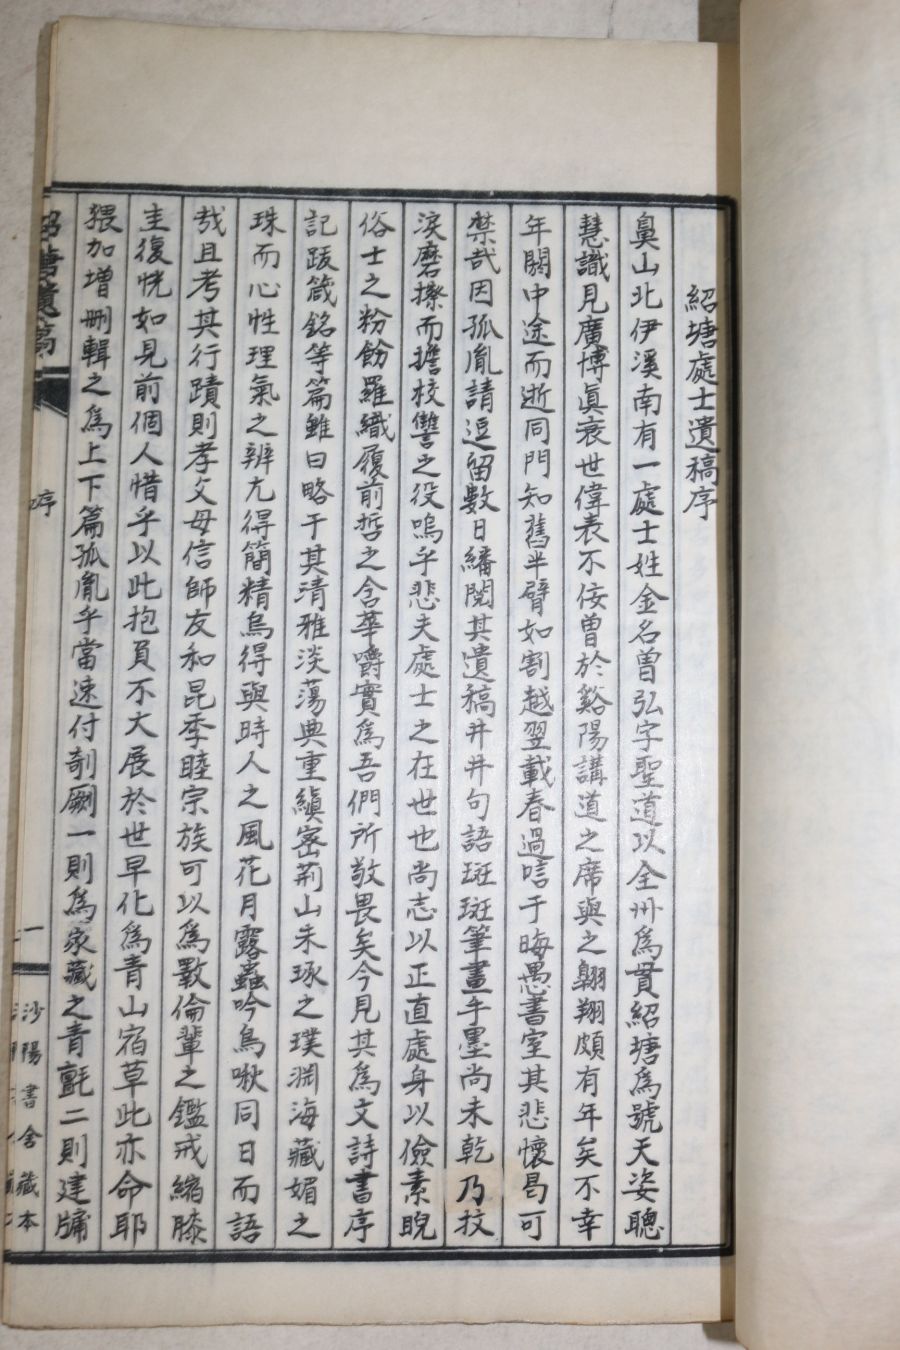 紹塘處士遺稿序
鼻山北伊溪南有一處士姓金名曽弘字聖道以全州爲貫紹塘爲號天姿聰
慧識見廣博眞衰世偉表不佞曽於谿陽講道之席與之翶翔頗有年矣不幸
年閼中途而逝同門知舊半臂如割越翌載春過唁于晦愚書室其悲懷曷可
禁哉因孤胤請逗留數日繙閱其遺稿井井句語斑斑筆畫手墨尚未乾乃抆
淚磨擦而擔校讐之役嗚乎悲夫處士之在世也尚志以正直處身以儉素睨
俗士之粉餙羅織履前哲之含華嚼實爲吾們所敬畏矣今見其爲文詩書序
記跋箴銘等篇雖曰略于其清雅淡蕩典重縝密荊山未琢之璞淵海藏媚之
珠而心性理氣之辨尤得簡精烏得與時人之風花月露蟲吟鳥啾同日而語
哉且考其行蹟則孝父母信師友和昆季睦宗族可以爲斁倫輩之鑑戒縮膝
圭復恍如見前個人惜乎以此抱負不大展於世早化爲青山宿草此亦命耶
猥加增刪輯之爲上下篇孤胤乎當速付剞劂一則爲家藏之青氈二則建牖
紹塘遺稿
序
一
沙陽書舍藏本